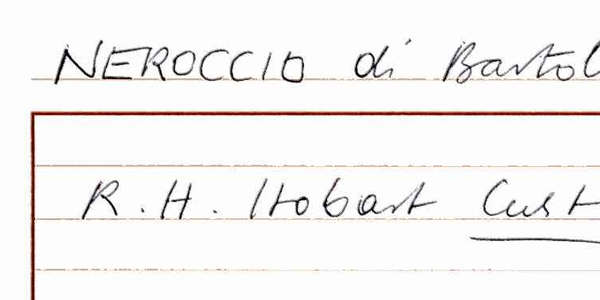 NEROCCIO di Bartol
R. H. Hobart Cust